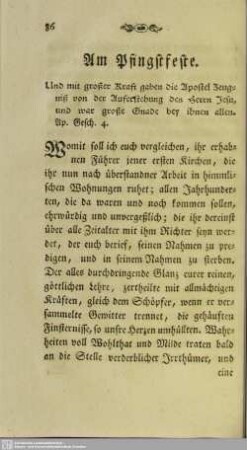 86
Am Pfingstfeste.
Und mit großer Kraft gaben die Apostel Zeug-
niß von der Auferstehung des Herrn Jesu,
und war große Gnade bey ihnen allen.
Ap. Gesch. 4.
Womit soll ich euch vergleichen, ihr erhab-
nen Führer jener ersten Kirchen, die
ihr nun nach überstandner Arbeit in himmli-
schen Wohnungen ruhet; allen Jahrhunder-
ten, die da waren und noch kommen sollen,
ehrwürdig und unvergeßlich; die ihr dereinst
über alle Zeitalter mit ihm Richter seyn wer-
det, der euch berief, seinen Nahmen zu pre-
digen, und in seinem Nahmen zu sterben.
Der alles durchdringende Glanz eurer reinen,
göttlichen Lehre, zertheilte mit allmächtigen
Kräften, gleich dem Schöpfer, wenn er ver-
sammelte Gewitter trennet, die gehäuften
Finsternisse, so unsre Herzen umhüllten. Wahr-
heiten voll Wohlthat und Milde traten bald
an die Stelle verderblicher Irrthümer; und
eine